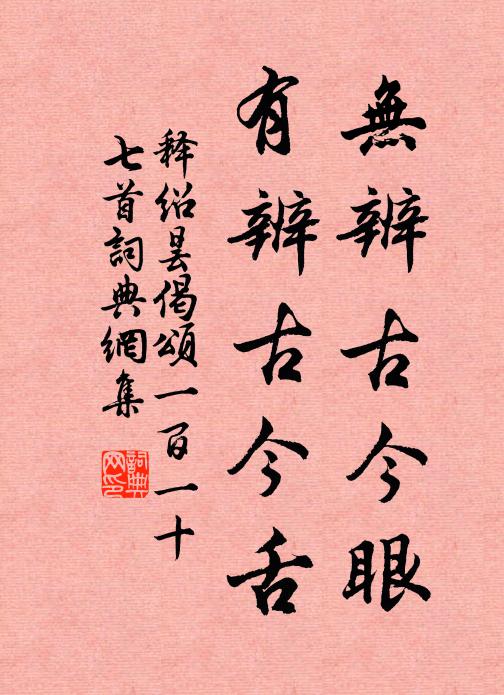 無辨古今眼
有辨古今舌
釋紹曇偈頌一百一十
七首詞典網集
詞典网印